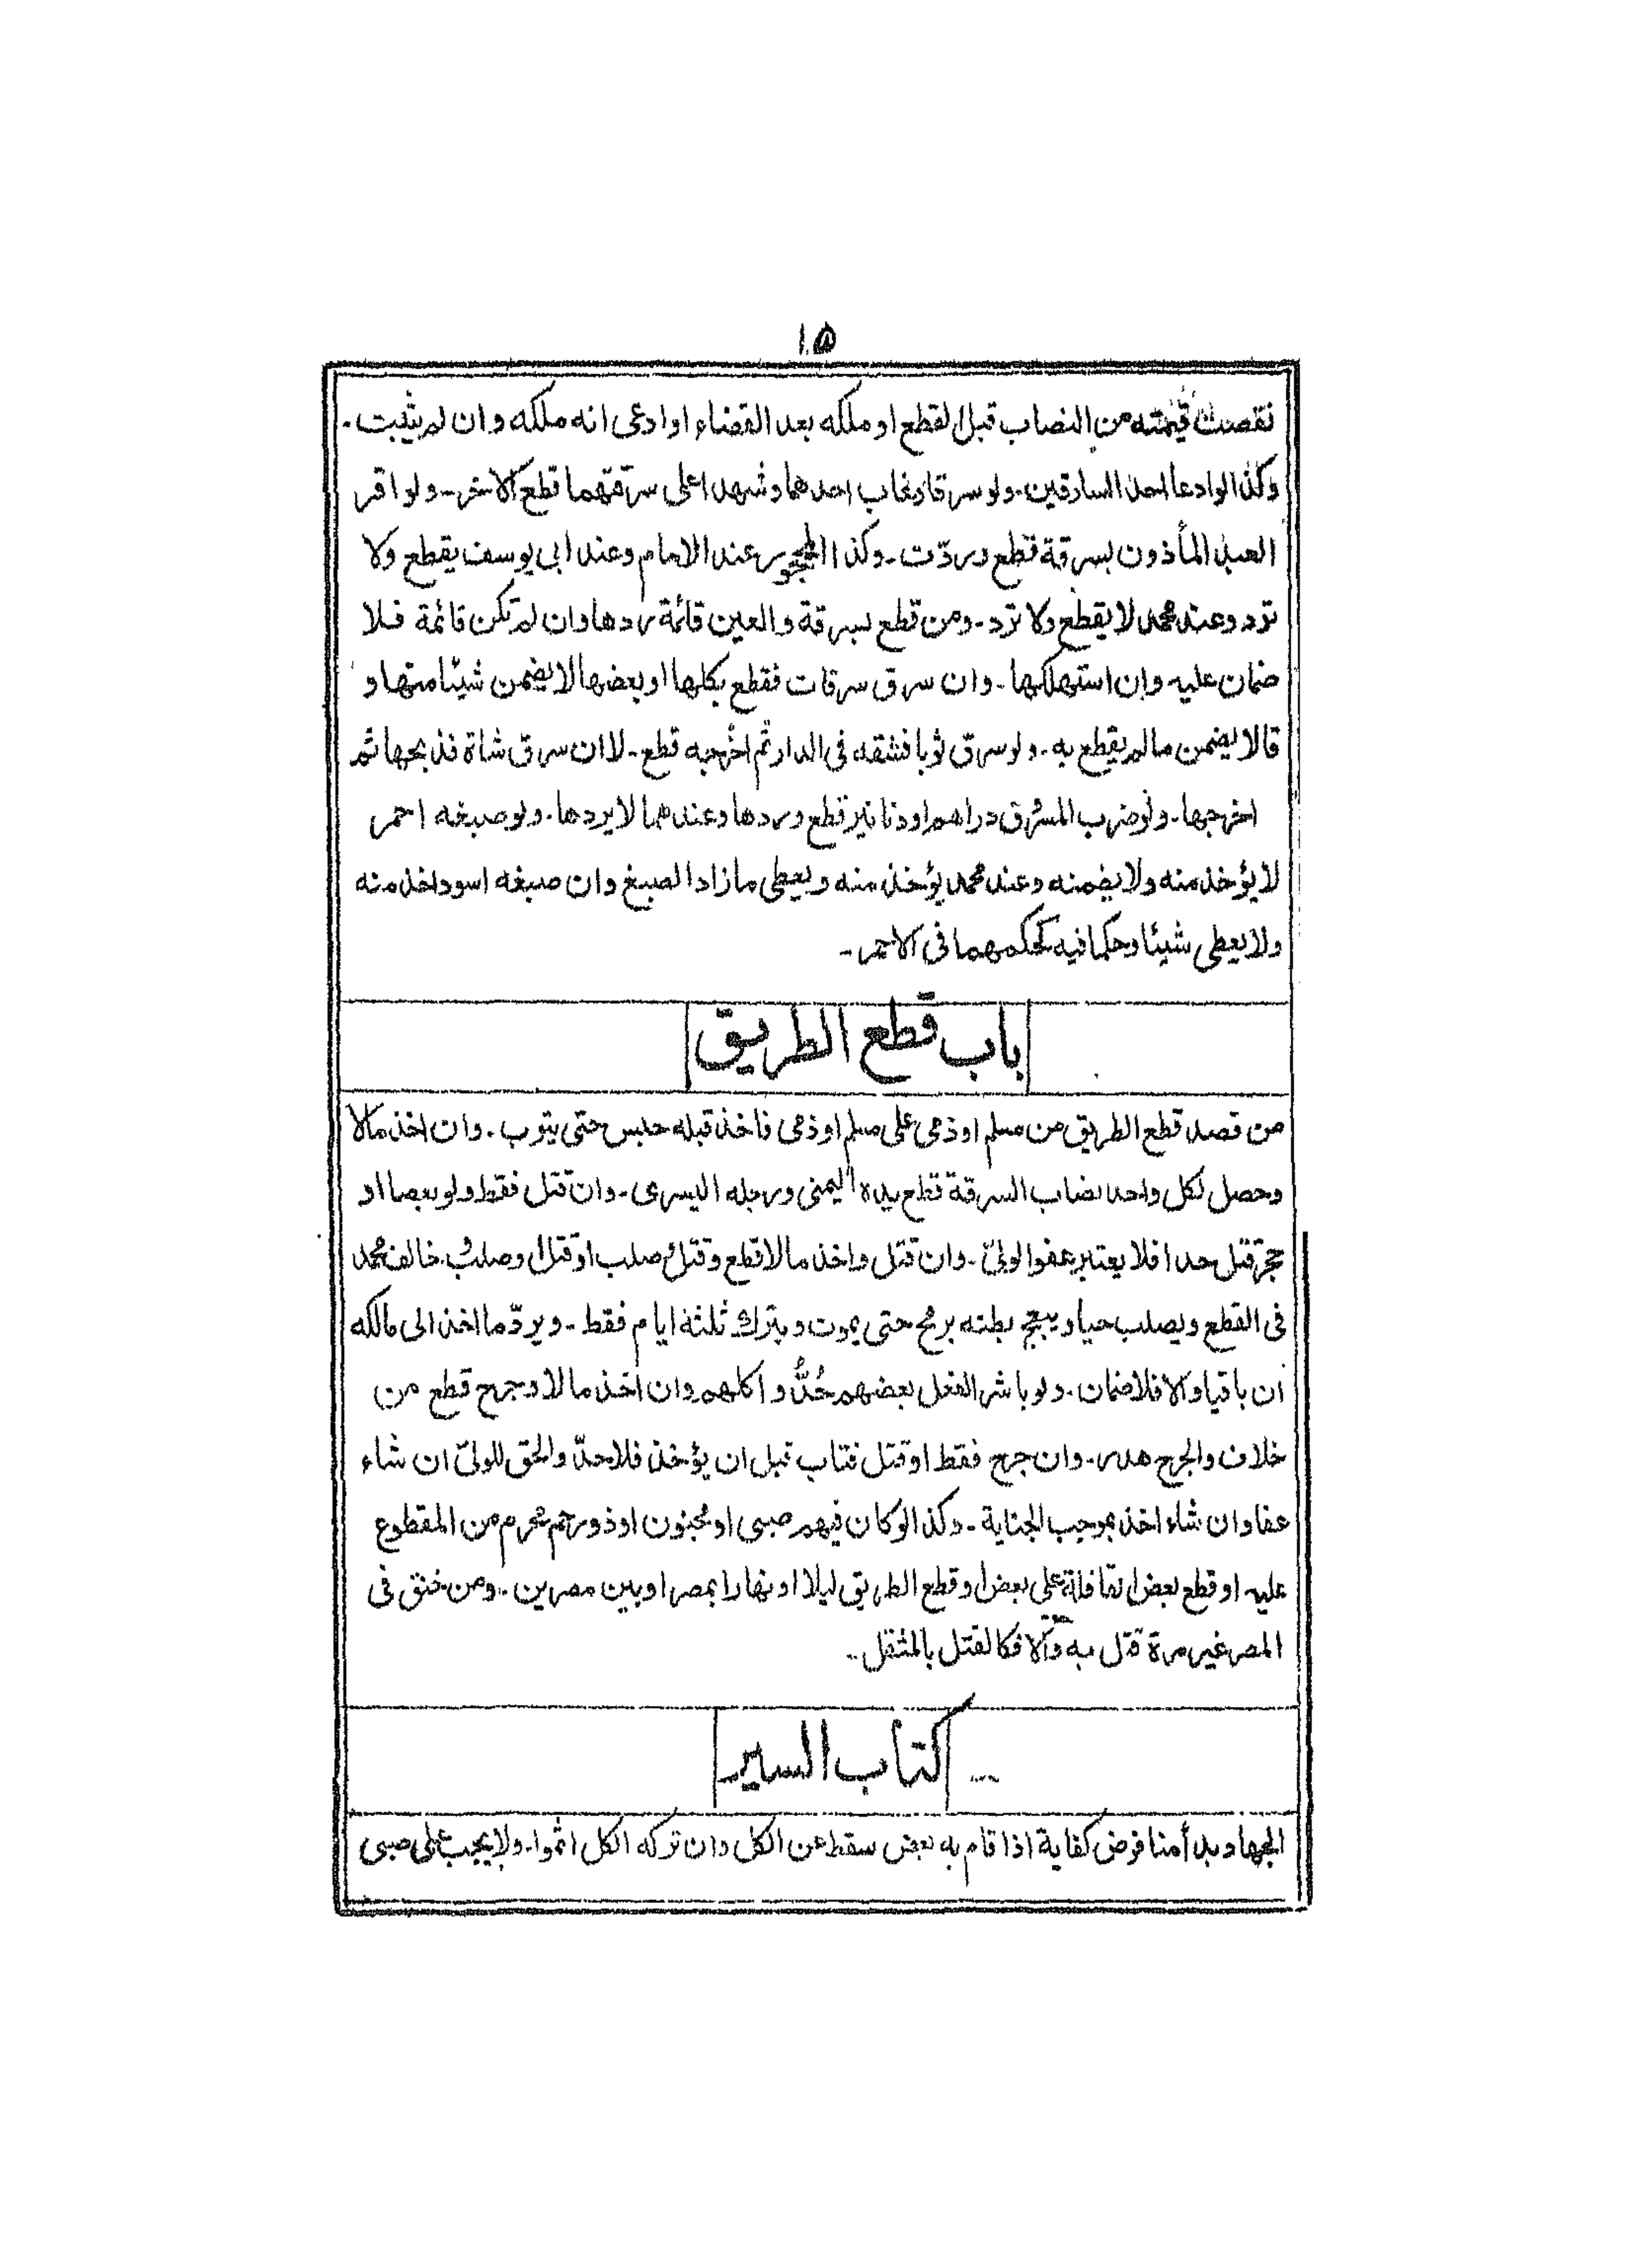 ١٥
نقصت قيمته من النصاب قبل القطع او ملكه بعد القضاء او ادعى انه ملكه وان لم يثبت۔
وكذا لو ادعا احد السارقين۔ ولو سرقا وغاب احدهما وشهدا على سرقتهما قطع الآخر۔ ولو اقر
العبد المأذون بسرقة قطع وردّت۔ وكذا المحجور عند الامام وعند ابى يوسف يقطع ولا
ترد وعند محمد لا يقطع ولا ترد۔ ومن قطع بسرقة والعين قائمة ردها وان لم تكن قائمة فلا
ضمان عليه وان استهلكها۔ وان سرق سرقات فقطع بكلها او بعضها لا يضمن شيئا منها و
قالا يضمن ما لم يقطع به۔ ولو سرق ثوبا فشقه فى الدار ثم اخرجه قطع۔ لا ان سرق شاة فذبحها ثم
اخرجها۔ ولو ضرب المسرق دراهم او دنانير قطع وردها وعندهما لا يردها۔ ولو صبغه احمر
لا يؤخذ منه ولا يضمنه وعند محمد يؤخذ منه ويعطى ما زاد الصبغ وان صبغه اسود اخذ منه
ولا يعطى شيئا وحكما فيه كحكمهما فى الاحمر۔
باب قطع الطريق
من قصد قطع الطريق من مسلم او ذمى على مسلم او ذمى فاخذ قبله حبس حتى يتوب۔ وان اخذ مالا
وحصل لكل واحد نصاب السرقة قطع يده اليمنى ورجله اليسرى۔ وان قتل فقط ولو بعصا او
حجر قتل حدا فلا يعتبر عفو الولىّ۔ وان قتل واخذ مالا قطع وقتل وصلب او قتل او صلب۔ خالف محمد
فى القطع ويصلب حيا ويبعج بطنه برمح حتى يموت ويترك ثلثة ايام فقط۔ ويردّ ما اخذ الى مالكه
ان باقيا والا فلا ضمان۔ ولو باشر الفعل بعضهم حُدُّوا كلهم وان اخذ مالا وجرح قطع من
خلاف والجرح هدر۔ وان جرح فقط او قتل فتاب قبل ان يؤخذ فلا حدّ والحق للولىّ ان شاء
عفا وان شاء اخذ بموجب الجناية۔ وكذا لو كان فيهم صبى او مجنون او ذو رحم محرم من المقطوع
عليه او قطع بعض القافلة على بعض او قطع الطريق ليلا او نهارا بمصر او بين مصرين۔ ومن خنق فى
المصر غير مرة قتل به والا فكالقتل بالمثقل۔
كتاب السير
الجهاد بدأ منا فرض كفاية اذا قام به بعض سقط عن الكل وان تركه الكل اثموا۔ ولا يجب على صبى